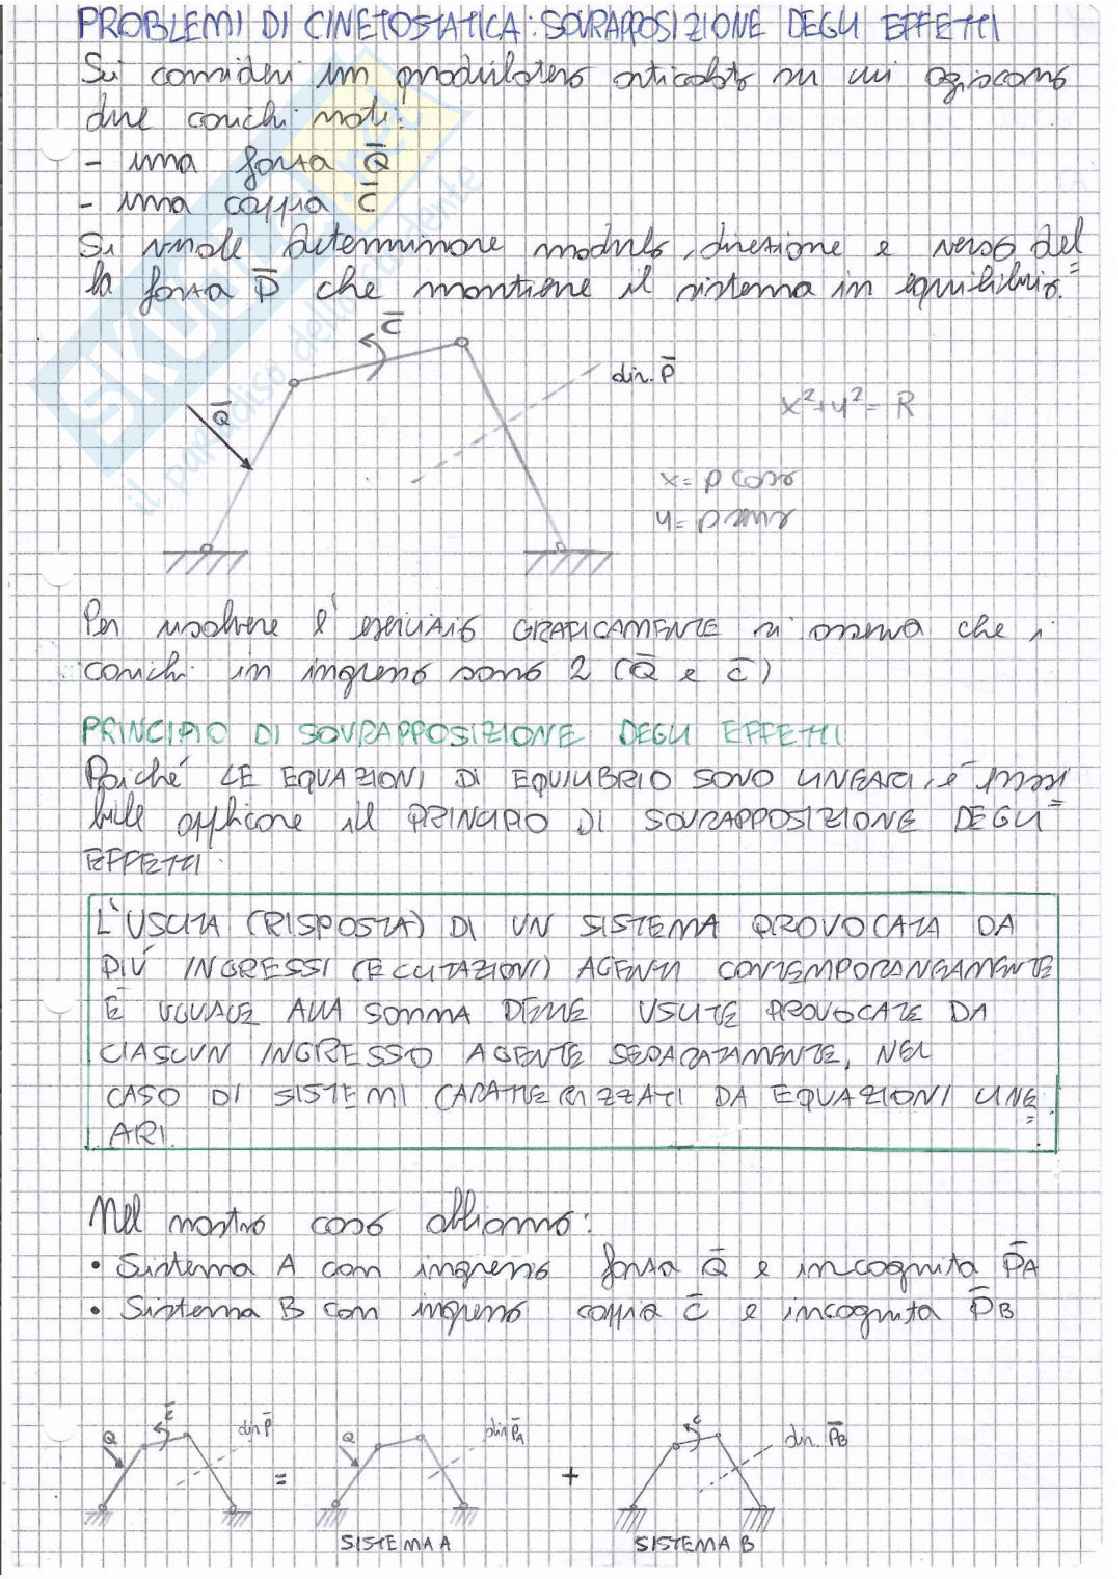 PROBLEMI DI CINETOSTATICA: SOVRAPPOSIZIONE DEGLI EFFETTI
Si consideri un quadrilatero articolato su cui agiscono
due carichi noti:
- una forza Q̅
- una coppia C̅
Si vuole determinare modulo, direzione e verso del=
la forza P̅ che mantiene il sistema in equilibrio.
C̅
dir. P̅
Q̅
x²+y²= R
x= ρ cosγ
y= ρ sinγ
Per risolvere l'esercizio GRAFICAMENTE si osserva che i
carichi in ingresso sono 2 (Q̅ e C̅)
PRINCIPIO DI SOVRAPPOSIZIONE DEGLI EFFETTI
Poiché LE EQUAZIONI DI EQUILIBRIO SONO LINEARI, è possi=
bile applicare il PRINCIPIO DI SOVRAPPOSIZIONE DEGLI
EFFETTI.
L'USCITA (RISPOSTA) DI UN SISTEMA PROVOCATA DA
PIÙ INGRESSI (ECCITAZIONI) AGENTI CONTEMPORANEAMENTE
È UGUALE ALLA SOMMA DELLE USCITE PROVOCATE DA
CIASCUN INGRESSO AGENTE SEPARATAMENTE, NEL
CASO DI SISTEMI CARATTERIZZATI DA EQUAZIONI LINE=
ARI.
Nel nostro caso abbiamo:
• Sistema A con ingresso forza Q̅ e incognita P̅A
• Sistema B con ingresso coppia C̅ e incognita P̅B
Q C̅ dir P̅ = Q dir P̅A + C dir. P̅B
SISTEMA A SISTEMA B
SKUOLA.net
il paradiso dello studente